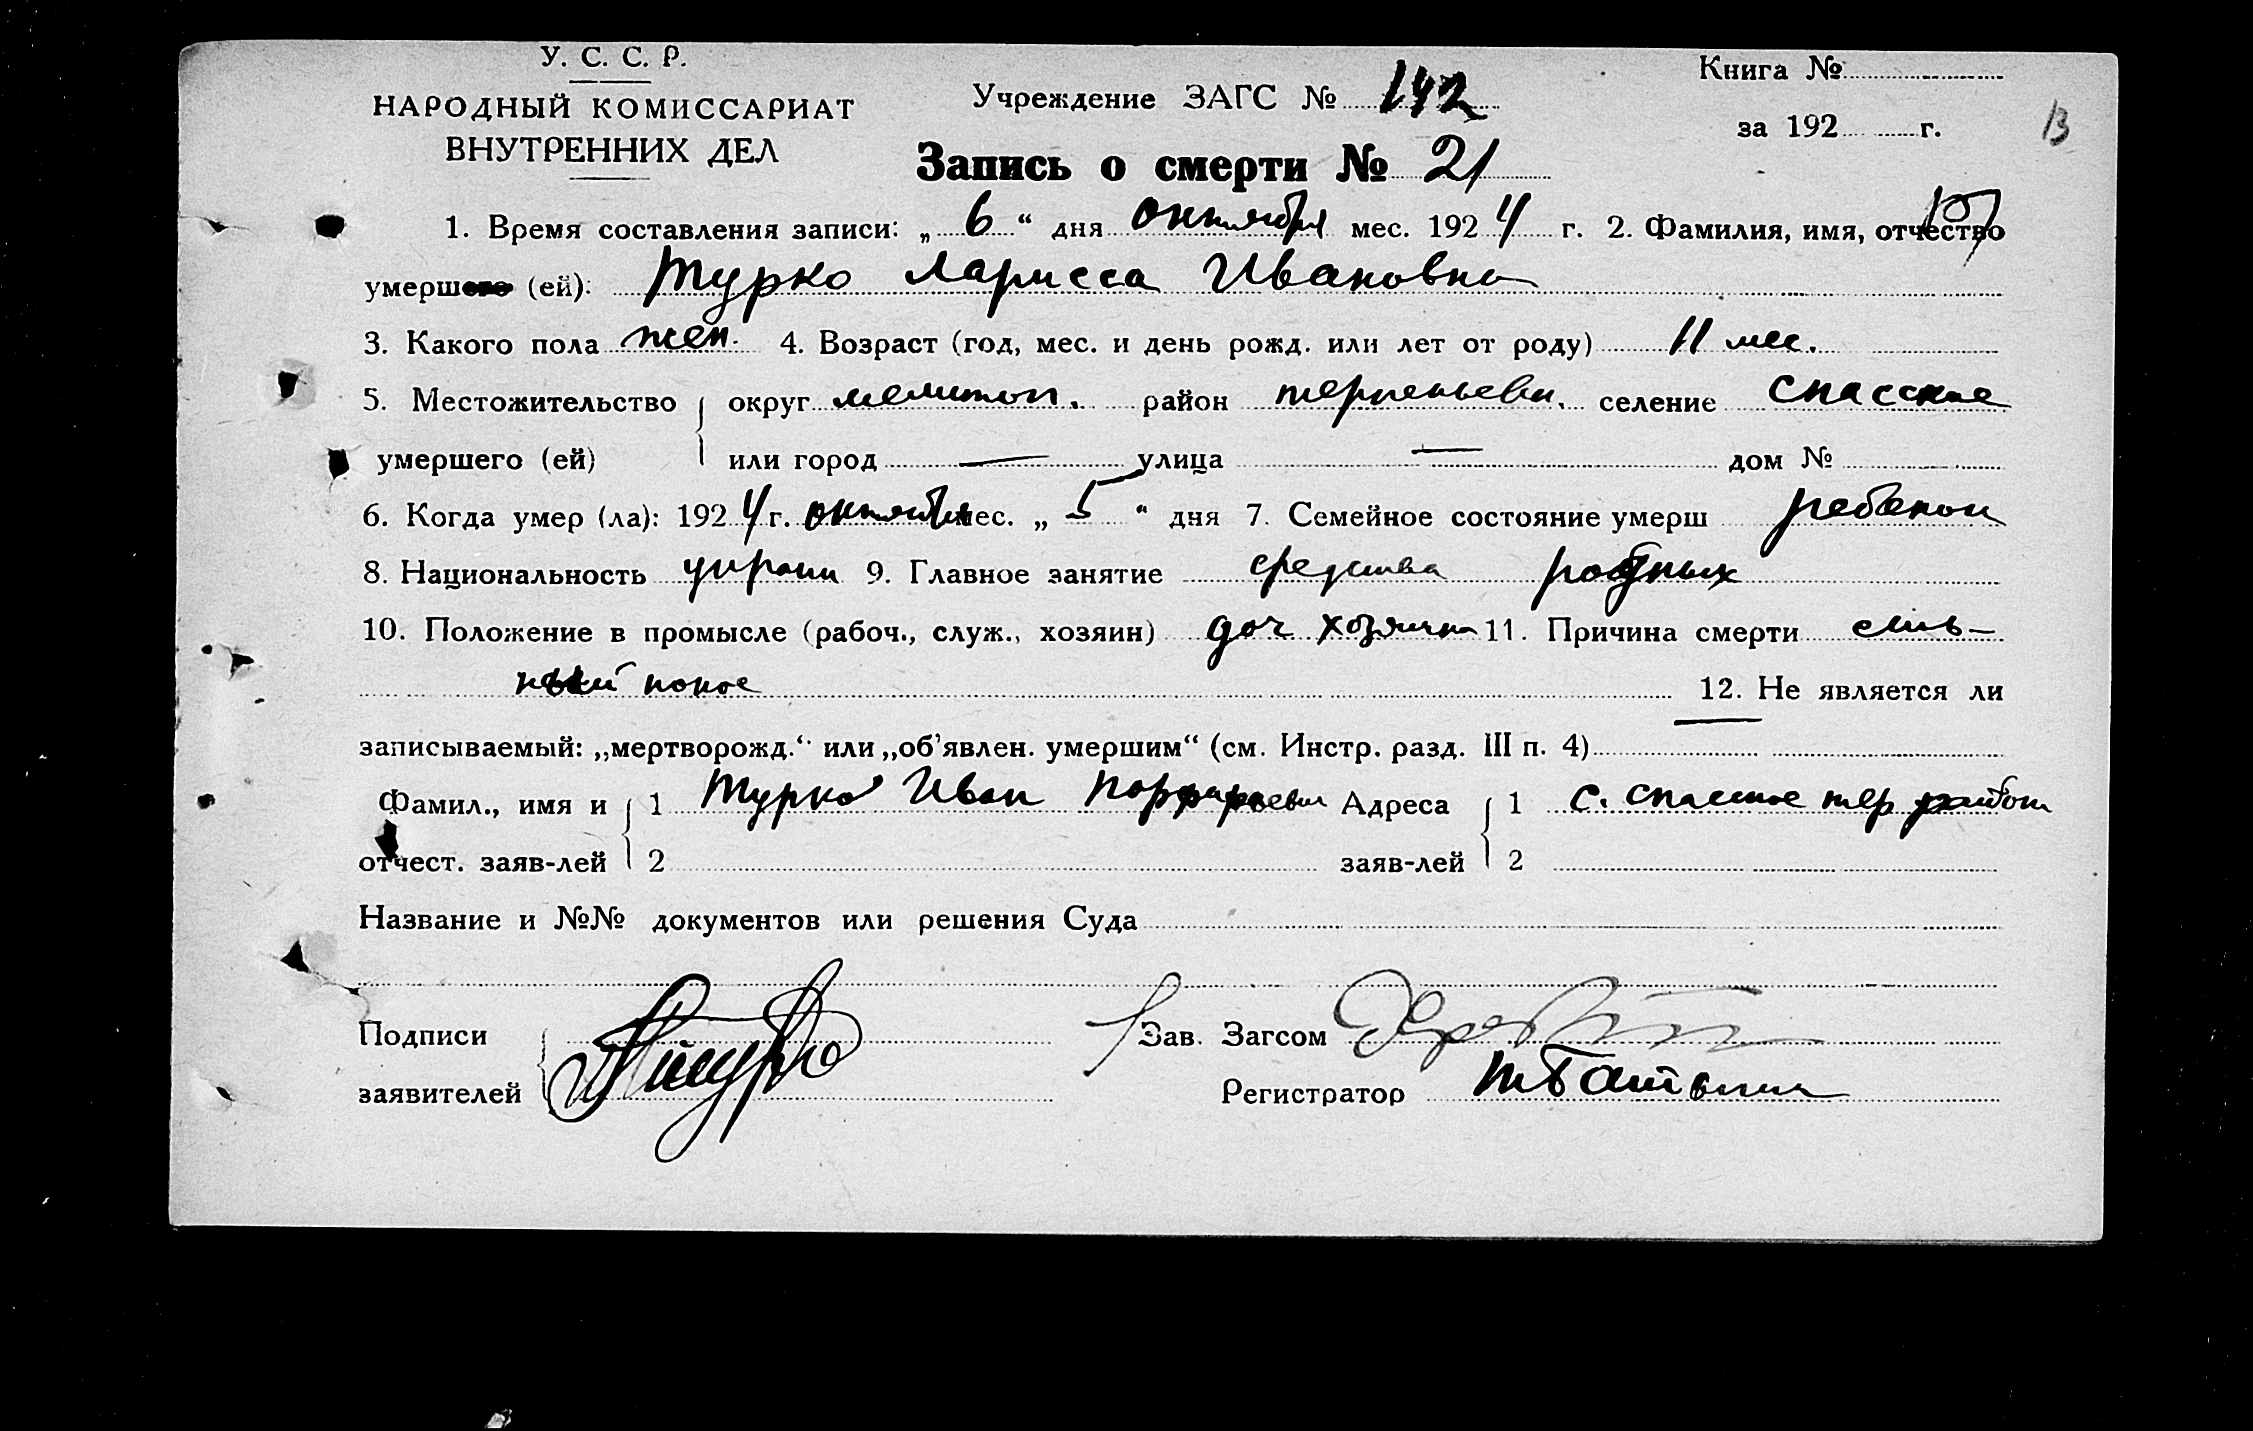 У. С. С. Р.
НАРОДНЫЙ КОМИССАРИАТ
ВНУТРЕННИХ ДЕЛ
Учреждение ЗАГС № 142
Книга №
за 192 г.
13
Запись о смерти № 21
1. Время составления записи: „ 6 “ дня октября мес. 192 4 г. 2. Фамилия, имя, отчество
умершего (ей): Турко Ларисса Ивановна
3. Какого пола жен. 4. Возраст (год, мес. и день рожд. или лет от роду) 11 мес.
5. Местожительство округ мелитоп. район терпеньевск. селение спасское
умершего (ей) или город — улица — дом №
6. Когда умер (ла): 192 4 г. октября мес. „ 5 “ дня 7. Семейное состояние умерш ребенок
8. Национальность украин 9. Главное занятие средства родных
10. Положение в промысле (рабоч., служ., хозяин) доч хозяина 11. Причина смерти силь-
ный понос 12. Не является ли
записываемый: „мертворожд.“ или „об’явлен. умершим“ (см. Инстр. разд. III п. 4) —
Фамил., имя и 1 Турко Иван Порфирьевич Адреса 1 с. спасское тер района
отчест. заяв-лей 2 заяв-лей 2
Название и №№ документов или решения Суда
Подписи Зав. Загсом
заявителей Регистратор